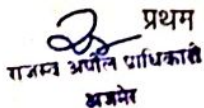 प्रथम
राजस्व अपील प्राधिकारी
अजमेर